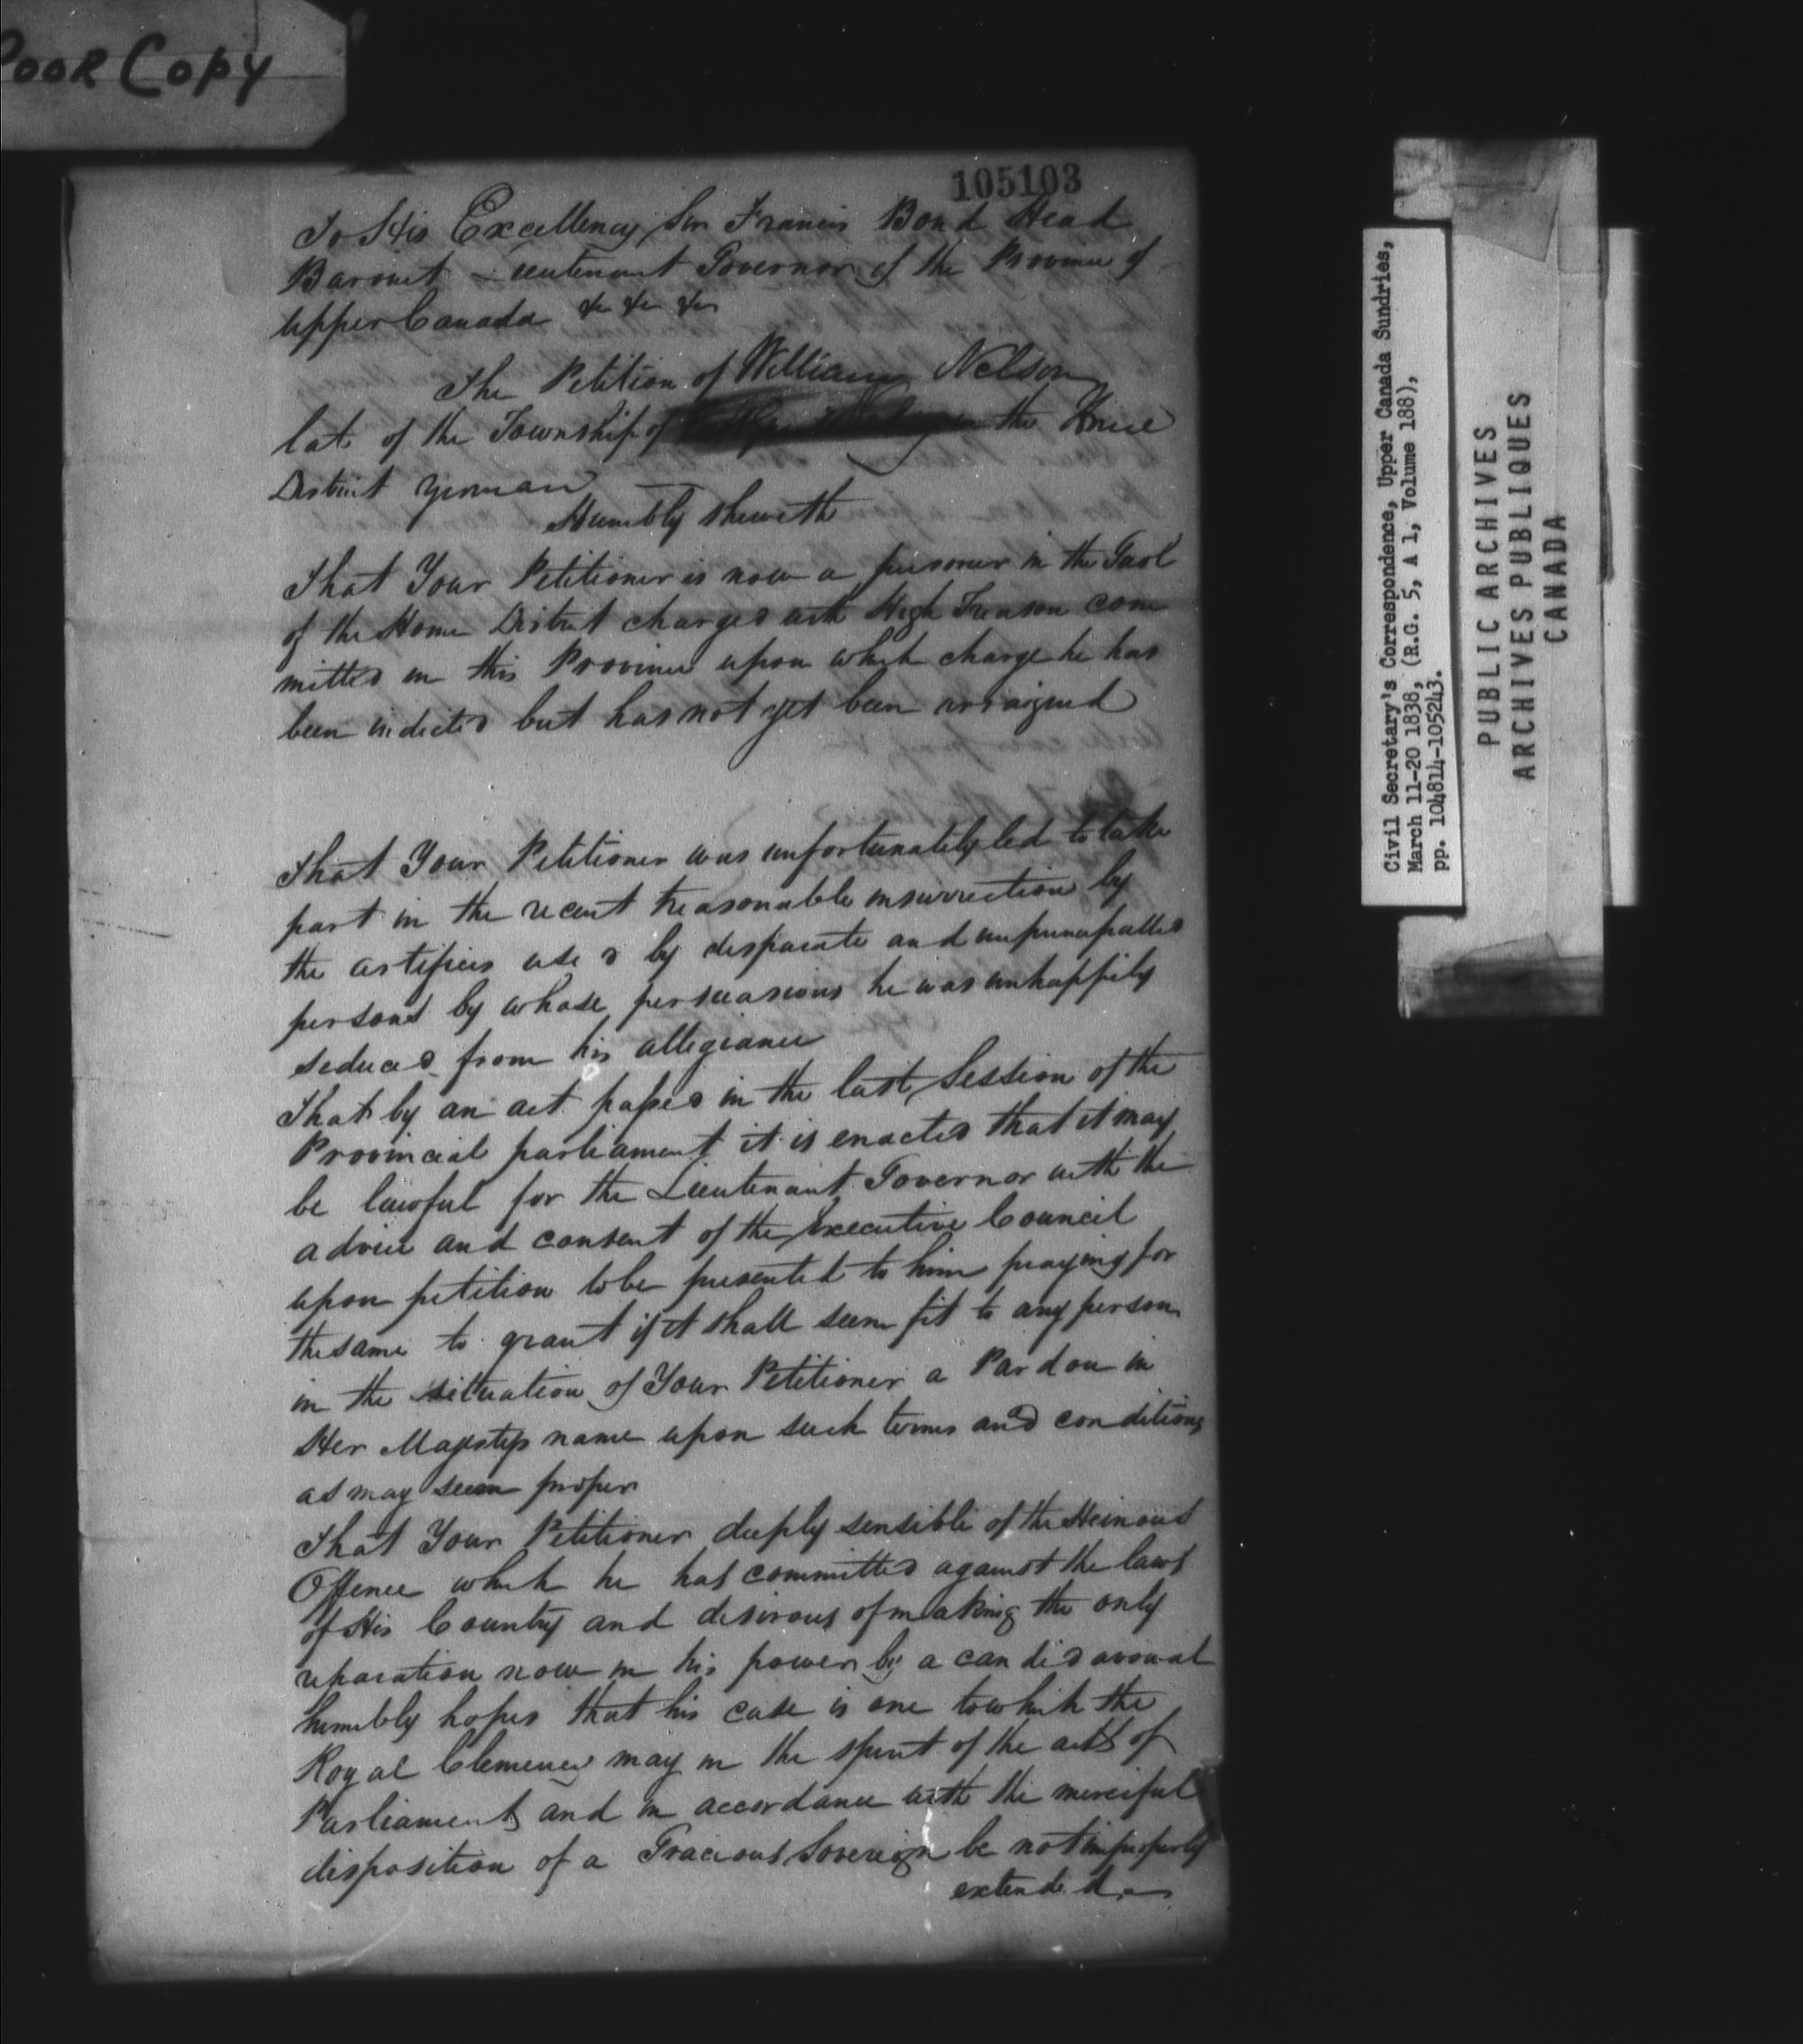 POOR COPY
105103
To His Excellency Sir Francis Bond Head
Baronet Lieutenant Governor of the Province of
Upper Canada &c &c &c
The Petition of William Nelson
late of the Township of in the Home
District Yeoman
Humbly sheweth
That Your Petitioner is now a prisoner in the Gaol
of the Home District charged with High Treason com
mitted in this Province upon which charge he has
been indicted but has not yet been arraigned
That Your Petitioner was unfortunately led to take
part in the recent treasonable insurrection by
the artifices used by desparate and unprincipalled
persons by whose persuasions he was unhappily
seduced from his allegiance
That by an act passed in the last Session of the
Provincial parliament it is enacted that it may
be lawful for the Lieutenant Governor with the
advice and consent of the Executive Council
upon petition to be presented to him praying for
the same to grant if it shall seem fit to any person
in the situation of Your Petitioner a Pardon in
Her Majestys name upon such terms and conditions
as may seem proper
That Your Petitioner deeply sensible of the Heinous
Offence which he has committed against the laws
of His Country and desirous of making the only
reparation now in his power by a candid avowal
humbly hopes that his case is one to which the
Royal Clemency may in the spirit of the acts of
Parliament and in accordance with the merciful
disposition of a Gracious Sovereign be not improperly
extended.
Civil Secretary's Correspondence, Upper Canada Sundries,
March 11-20 1838, (R.G. 5, A 1, Volume 188),
pp. 104814-105243.
PUBLIC ARCHIVES
ARCHIVES PUBLIQUES
CANADA